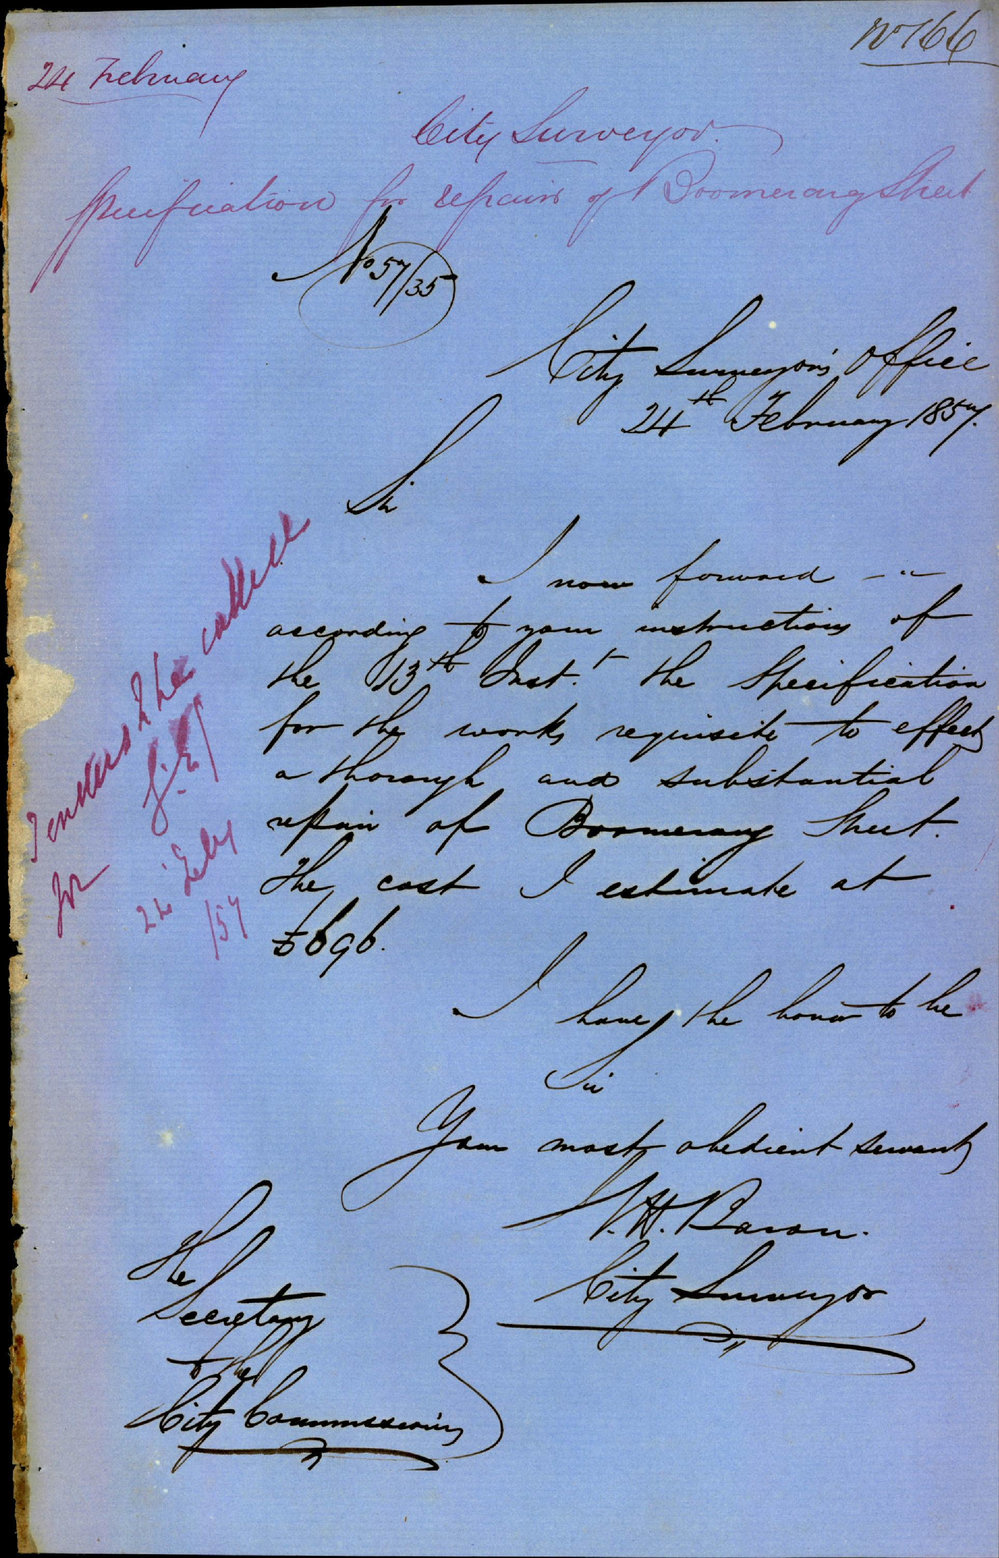 No 166
24 February
City Surveyor.
Specification for repairs of Boomerang Street
No 57/35
City Surveyor's Office
24th February 1857.
Sir
I now forward
according to your instructions of
the 13th Inst. the Specification
for the works requisite to effect
a thorough and substantial
repair of Boomerang Street.
The cost I estimate at
£696.
I have the honor to be
Sir
Your most obedient servant
W. H. Baron.
City Surveyor
The
Secretary
to the
City Commissioners
Tenders to be called
for
24 Feby
/57